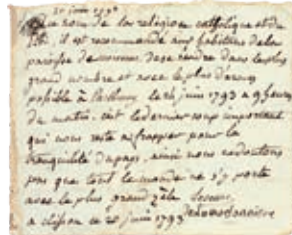 20 juin 1793
Au nom de la religion catholique et du
Roi, il est recommandé aux habitans de la
paroisse de de se rendre dans le plus
grand nombre et avec le plus d'armes
possible à le 26 juin 1793 a 9 heures
du matin. c'est le dernier coup important
qui nous reste a frapper pour la
tranquilité du pays, ainsi nous ne doutons
pas que tout le monde ne s'y porte
avec le plus grand zèle
a clisson ce 20 juin 1793